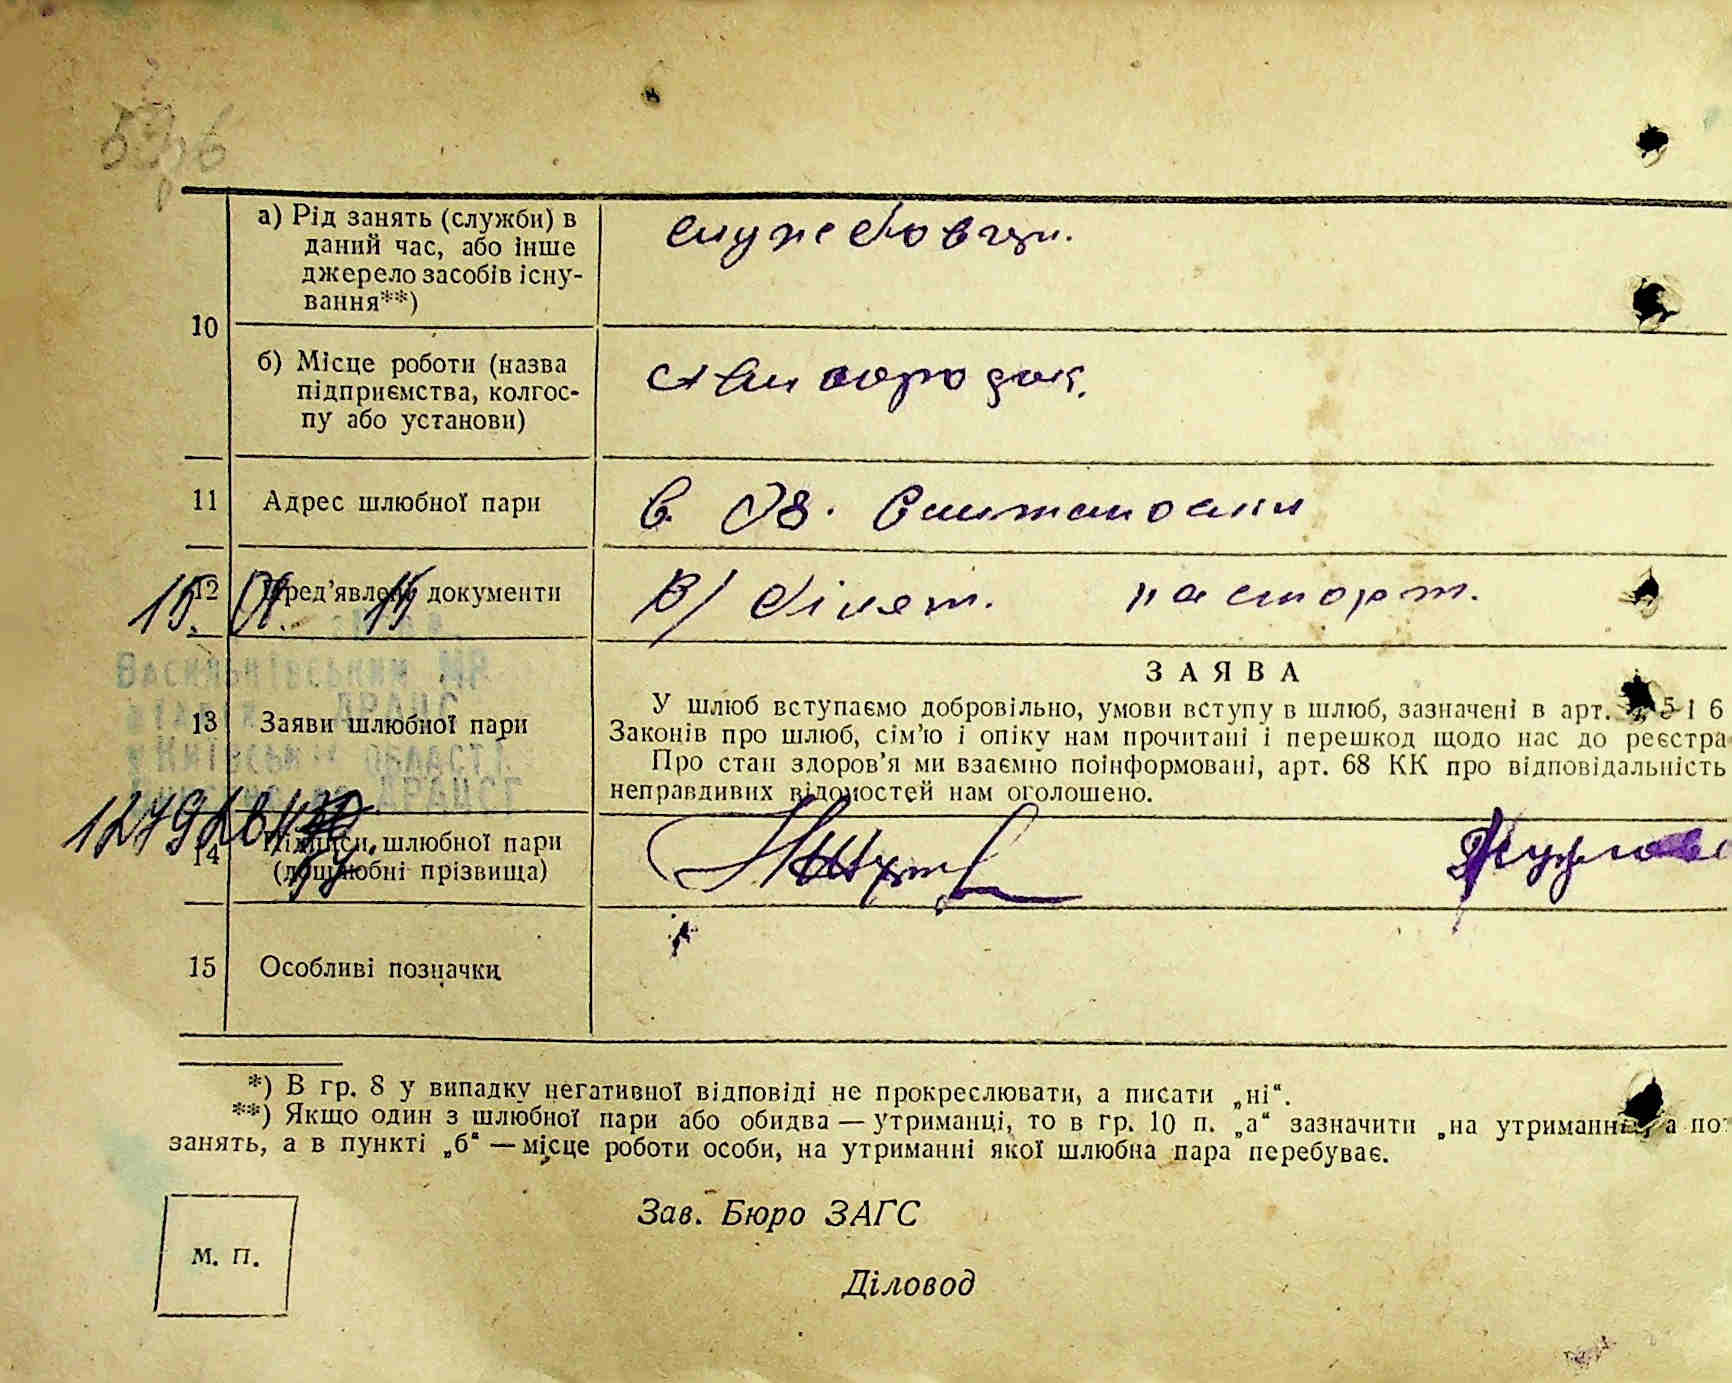 а) Рід занять (служби) в
даний час, або інше
джерело засобів існу-
вання**)
службовци.
10
б) Місце роботи (назва
підприємства, колгос-
пу або установи)
11 Адрес шлюбної пари
в. 08.
12 Пред’явлені документи
В/ білет. паспорт.
15. 01. 15
Васильківський МР
ДРАЦС
Київській області
ДРАЦСГ
ЗАЯВА
13 Заяви шлюбної пари
У шлюб вступаємо добровільно, умови вступу в шлюб, зазначені в арт. 5 і 6
Законів про шлюб, сім’ю і опіку нам прочитані і перешкод щодо нас до реєстра
Про стан здоров’я ми взаємно поінформовані, арт. 68 КК про відповідальність
неправдивих відомостей нам оголошено.
14 Підписи шлюбної пари
(дошлюбні прізвища)
15 Особливі позначки
*) В гр. 8 у випадку негативної відповіді не прокреслювати, а писати „ні“.
**) Якщо один з шлюбної пари або обидва — утриманці, то в гр. 10 п. „а“ зазначити „на утриманні“, а по
занять, а в пункті „б“ — місце роботи особи, на утриманні якої шлюбна пара перебуває.
Зав. Бюро ЗАГС
м. п.
Діловод